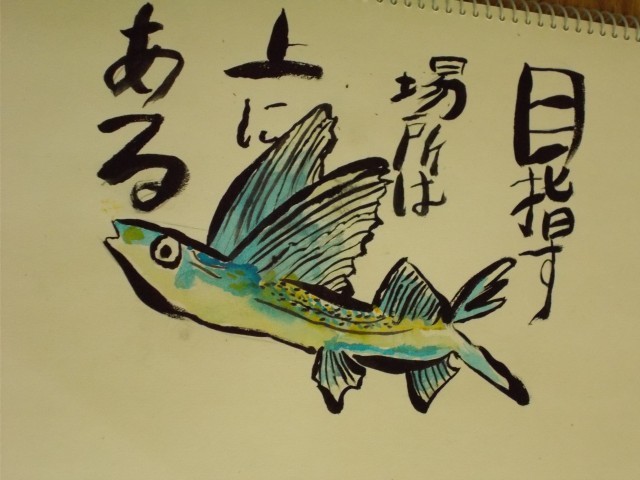 目指す
場所は
上に
ある